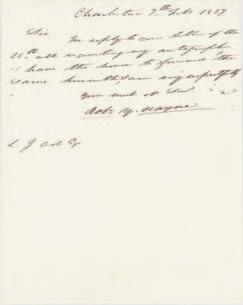 Charleston 7th Feb 1837
Sir In reply to your letter of the
25th ult requesting my autograph
I have the honor to forward the
same herewith & am very respectfully
Your most ob Ser
Rob. Y. Hayne
L. J. Esq